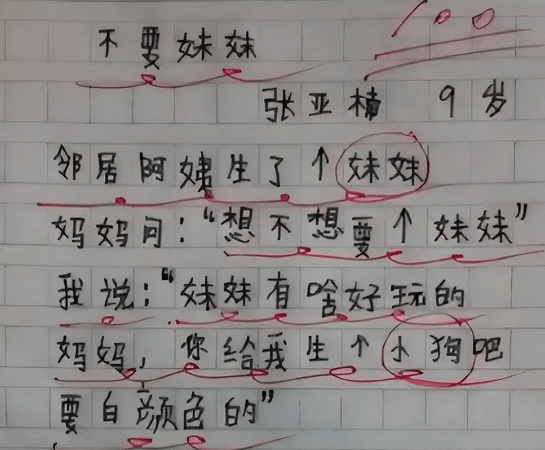 不要妹妹
100
张亚楠 9岁
邻居阿姨生了个妹妹
妈妈问：“想不想要个妹妹”
我说：“妹妹有啥好玩的
妈妈，你给我生个小狗吧
要白颜色的”